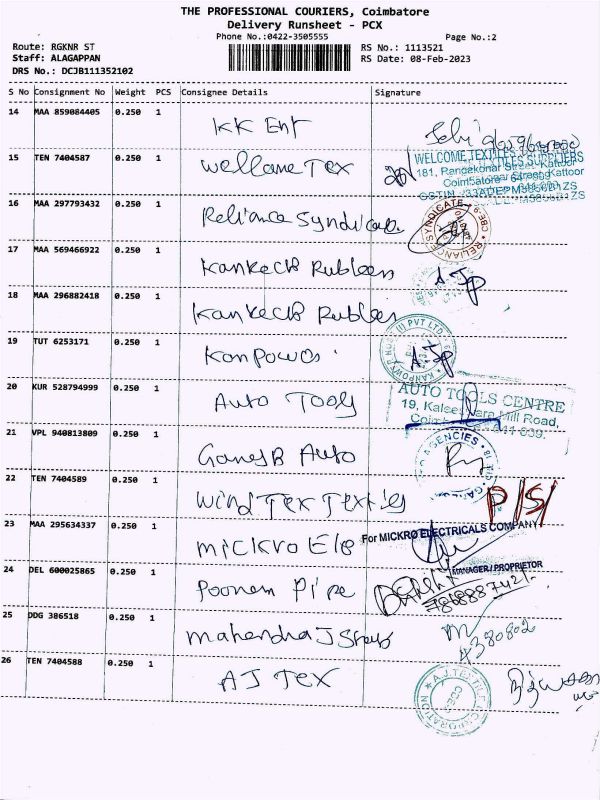 THE PROFESSIONAL COURIERS, Coimbatore
Delivery Runsheet - PCX
Phone No.:0422-3505555
Page No.:2
Route: RGKNR ST
RS No.: 1113521
Staff: ALAGAPPAN
RS Date: 08-Feb-2023
DRS No.: DCJB111352102
S No Consignment No Weight PCS Consignee Details Signature
14 MAA 859084405 0.250 1
KK Ent
15 TEN 7404587 0.250 1
Wellcome Tex
WELCOME TEXTILES
181, Rangekonar Street, Kattoor
Coimbatore
16 MAA 297793432 0.250 1
Reliance Syndicate
RELIANCE SYNDICATE CBE-9
17 MAA 569466922 0.250 1
Kankecb Rubbers
18 MAA 296882418 0.250 1
Kankecb Rubbers
19 TUT 6253171 0.250 1
Kanpower
KANPOWER (I) PVT LTD
20 KUR 528794999 0.250 1
Auto Tools
AUTO TOOLS CENTRE
19, Kaleeswara Mill Road,
21 VPL 940813809 0.250 1
Ganesh Auto
AGENCIES
22 TEN 7404589 0.250 1
Wind Tex Textiles
P/S/
23 MAA 295634337 0.250 1
Mickro Ele
For MICKRO ELECTRICALS COMPANY
MANAGER / PROPRIETOR
24 DEL 600025865 0.250 1
Poonam Pipe
25 DDG 386518 0.250 1
Mahendra J Steels
26 TEN 7404588 0.250 1
AJ Tex
A.J. TEX CORPORATION